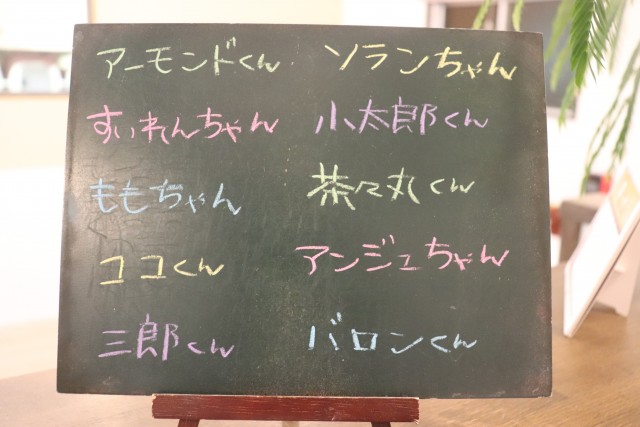 アーモンドくん
すいれんちゃん
ももちゃん
ココくん
三郎くん
ソランちゃん
小太郎くん
茶々丸くん
アンジュちゃん
バロンくん